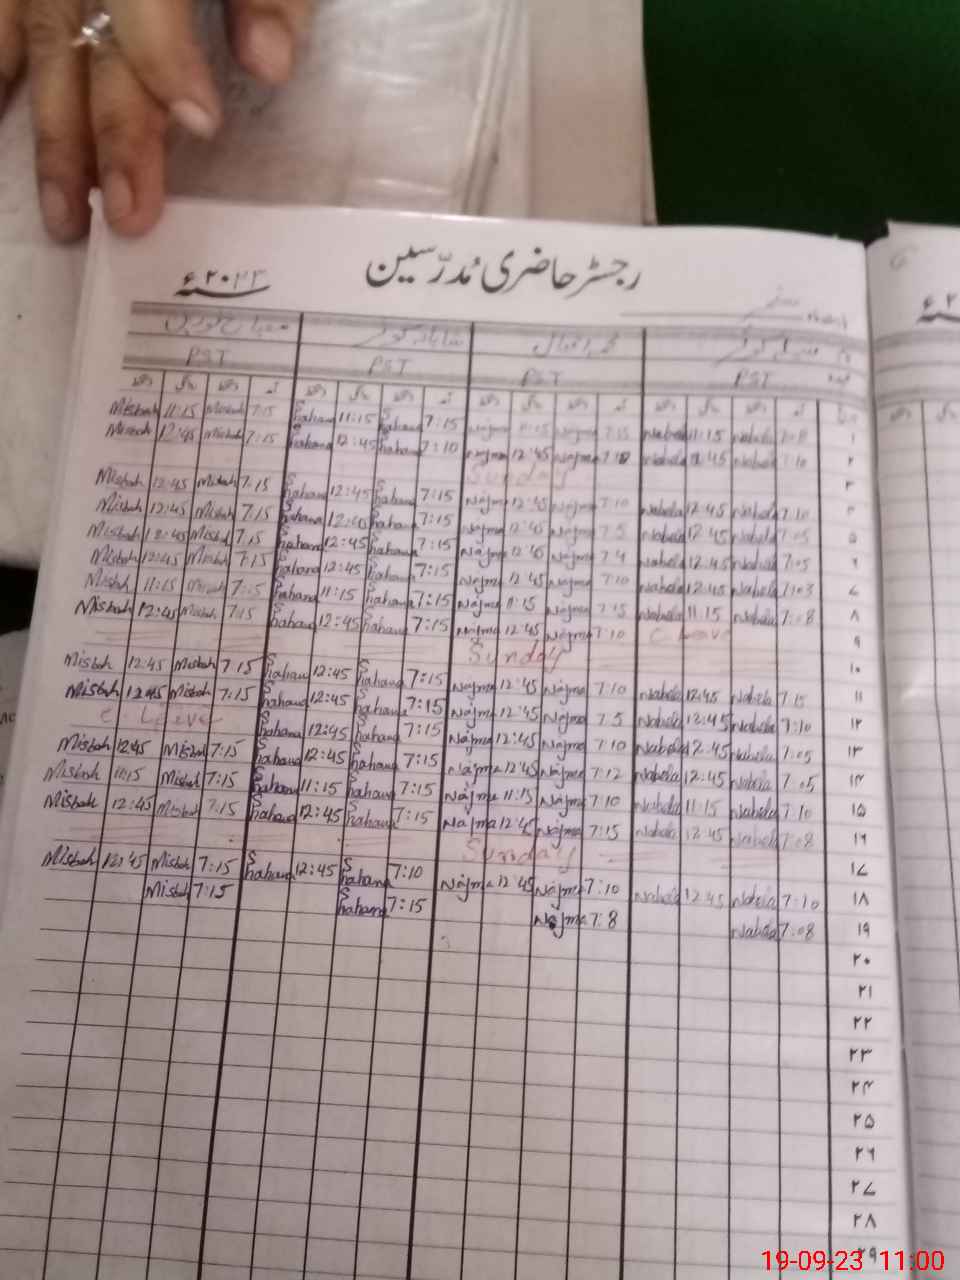 رجسٹر حاضری مُدرّسین
سنہ ۲۰۲۳ء
PST PST PST PST
Misbah 11:15 Misbah 7:15 Shahana 11:15 Shahana 7:15 Najma Najma 7:15 Nabela 11:15 Nabela 7:08 ۱
Misbah 12:45 Misbah 7:15 Shahana 12:45 Shahana 7:10 Najma 12:45 Najma Nabela 12:45 Nabela 7:10 ۲
Sunday ۳
Misbah 12:45 Misbah 7:15 Shahana 12:45 Shahana 7:15 Najma 12:45 Najma 7:10 Nabela 12:45 Nabela 7:10 ۴
Misbah 12:45 Misbah 7:15 Shahana 12:45 Shahana 7:15 Najma 12:45 Najma 7:5 Nabela 12:45 Nabela 7:05 ۵
Misbah 12:45 Misbah 7:15 Shahana 12:45 Shahana 7:15 Najma 12:45 Najma Nabela 12:45 Nabela 7:05 ۶
Misbah 12:45 Misbah 7:15 Shahana 12:45 Shahana 7:15 Najma 12:45 Najma 7:10 Nabela 12:45 Nabela 7:03 ۷
Misbah 11:15 Misbah Shahana 11:15 Shahana 7:15 Najma 11:15 Najma 7:15 Nabela 11:15 Nabela 7:08 ۸
Misbah 12:45 Misbah 7:15 Shahana 12:45 Shahana 7:15 Najma 12:45 Najma 7:10 C Leave ۹
Sunday ۱۰
Misbah 12:45 Misbah 7:15 Shahana 12:45 Shahana 7:15 Najma 12:45 Najma 7:10 Nabela 12:45 Nabela 7:15 ۱۱
Misbah 12:45 Misbah 7:15 Shahana 12:45 Shahana 7:15 Najma 12:45 Najma 7:5 Nabela 12:45 Nabela 7:10 ۱۲
C Leave Shahana 12:45 Shahana 7:15 Najma 12:45 Najma 7:10 Nabela 12:45 Nabela 7:05 ۱۳
Misbah 12:45 Misbah 7:15 Shahana 12:45 Shahana 7:15 Najma 12:45 Najma 7:12 Nabela 12:45 Nabela 7:05 ۱۴
Misbah 11:15 Misbah 7:15 Shahana 11:15 Shahana 7:15 Najma 11:15 Najma 7:10 Nabela 11:15 Nabela 7:10 ۱۵
Misbah 12:45 Misbah 7:15 Shahana 12:45 Shahana 7:15 Najma 12:45 Najma 7:15 Nabela 12:45 Nabela 7:08 ۱۶
Sunday ۱۷
Misbah 12:45 Misbah 7:15 Shahana 12:45 Shahana 7:10 Najma 12:45 Najma 7:10 Nabela 12:45 Nabela 7:10 ۱۸
Misbah 7:15 Shahana 7:15 Najma 7:8 Nabela 7:08 ۱۹
۲۰
۲۱
۲۲
۲۳
۲۴
۲۵
۲۶
۲۷
۲۸
۲۹
19-09-23 11:00